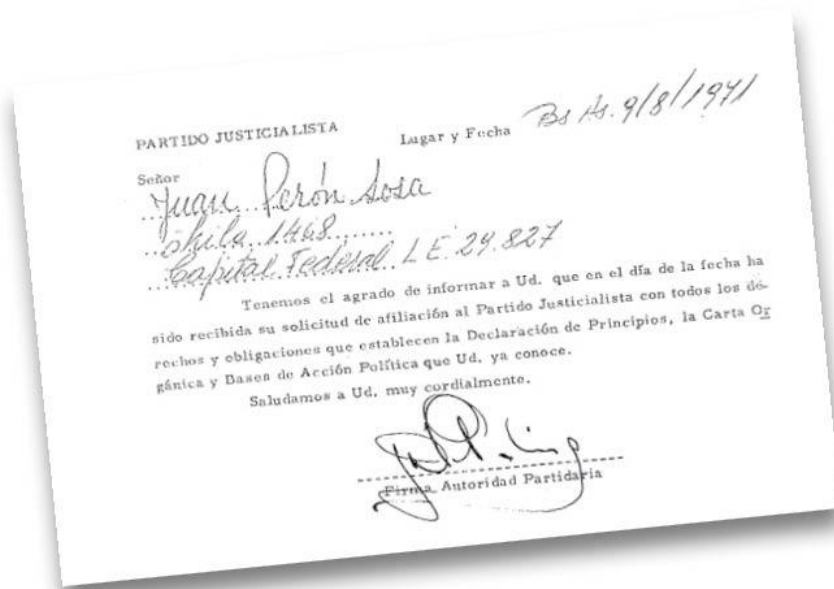 PARTIDO JUSTICIALISTA Lugar y Fecha Bs As. 9/8/1971
Señor
Juan Perón Sosa
1468
Capital Federal L E. 24.827
Tenemos el agrado de informar a Ud. que en el día de la fecha ha
sido recibida su solicitud de afiliación al Partido Justicialista con todos los de-
rechos y obligaciones que establecen la Declaración de Principios, la Carta Or
gánica y Bases de Acción Política que Ud. ya conoce.
Saludamos a Ud. muy cordialmente.
Firma Autoridad Partidaria